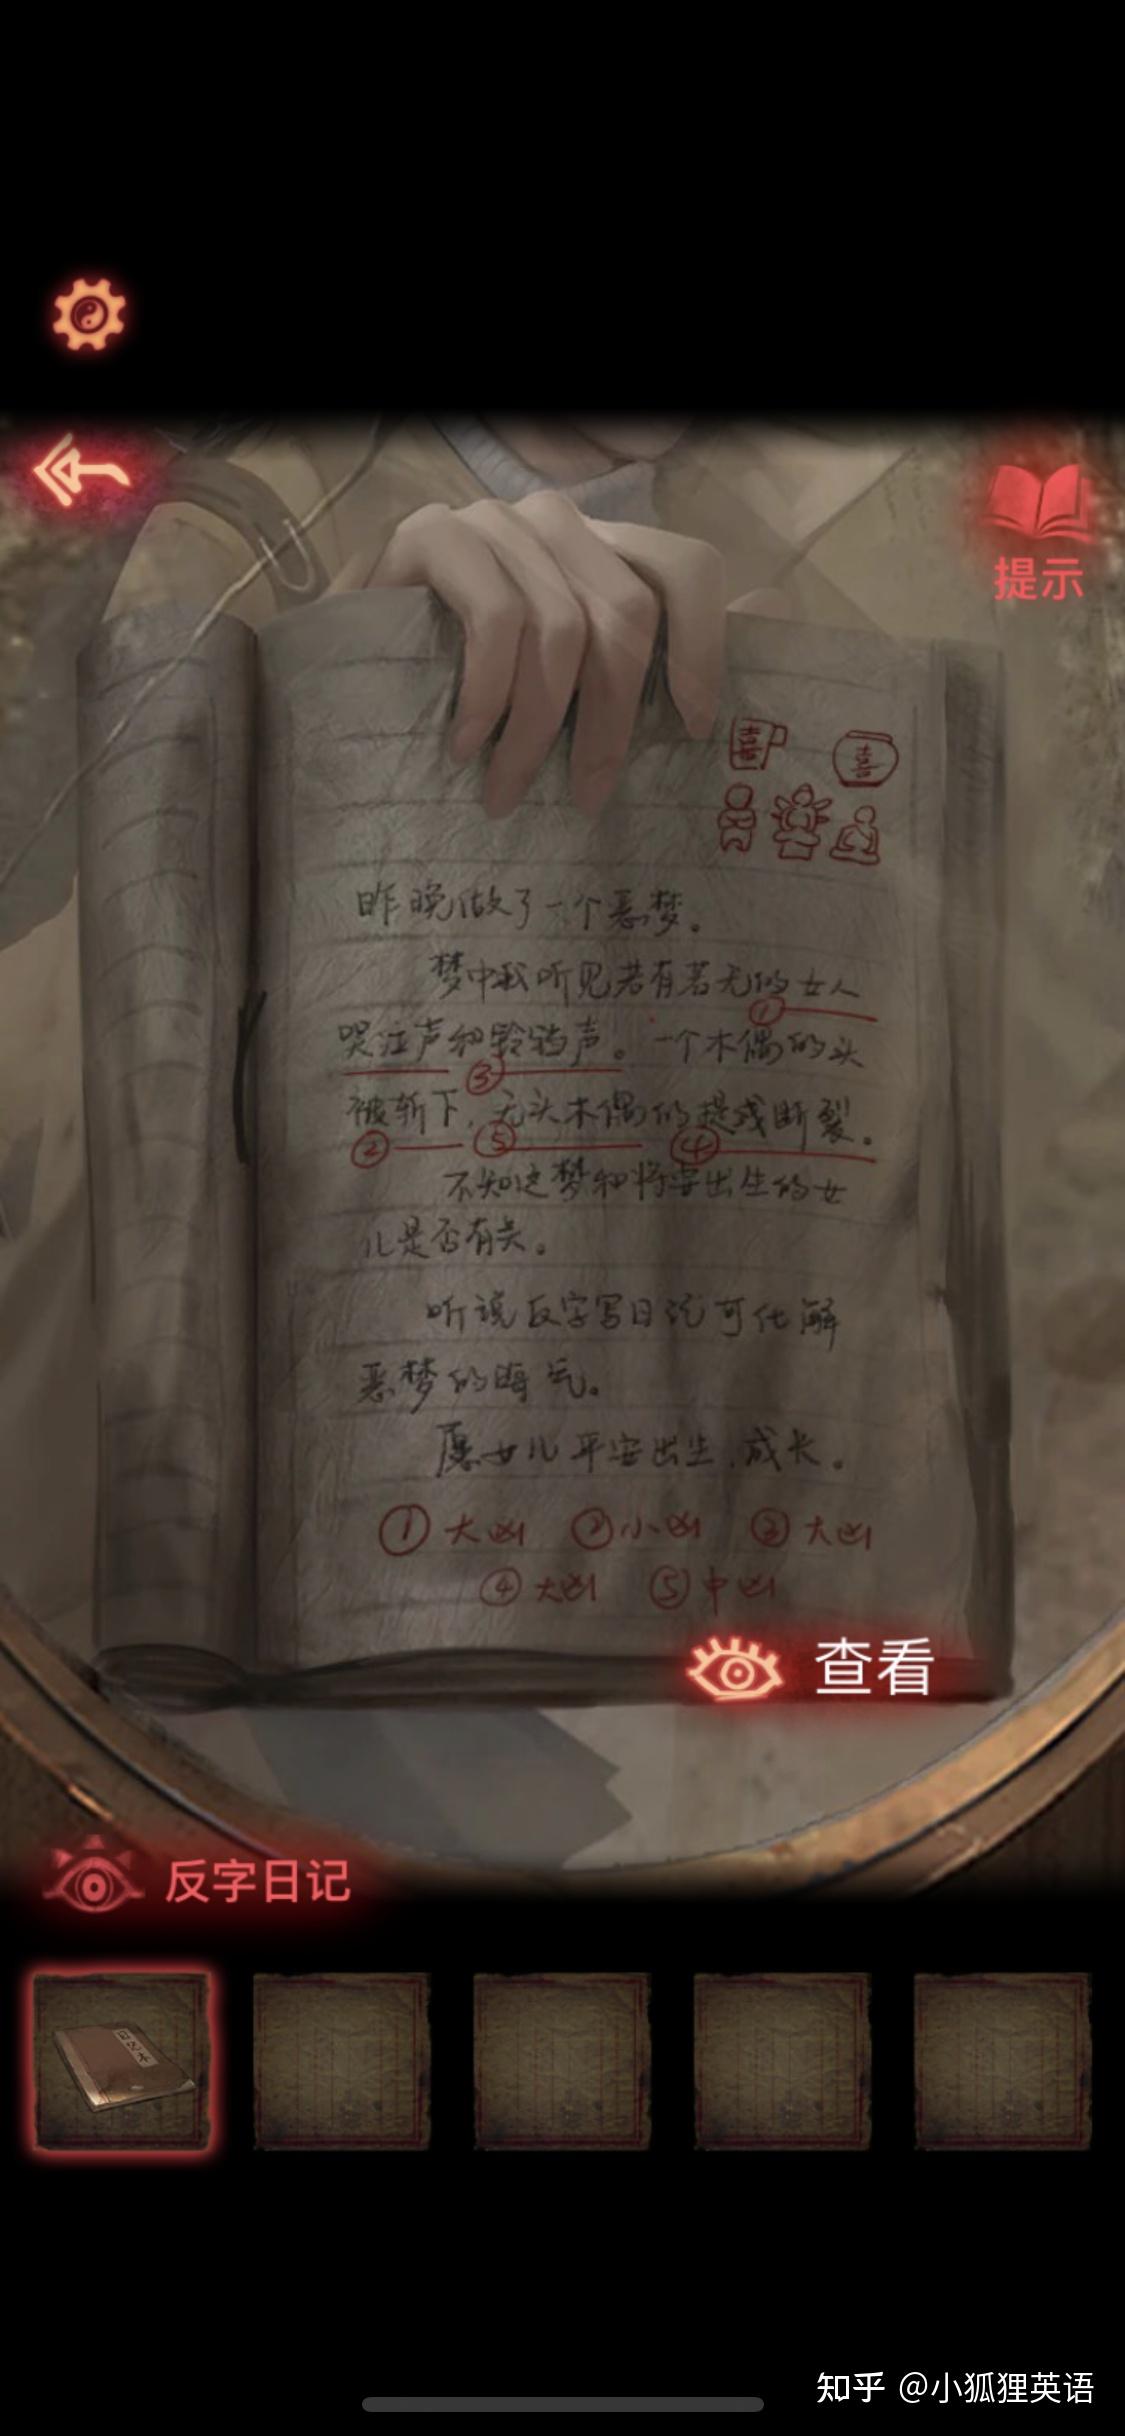 提示
喜 喜
昨晚做了一个恶梦。
梦中我听见若有若无的女人
①
哭泣声和铃铛声。一个木偶的头
③
被斩下,无头木偶的提线断裂。
② ⑤ ④
不知这梦和将要出生的女
儿是否有关。
听说反字写日记可化解
恶梦的晦气。
愿女儿平安出生,成长。
①大凶 ②小凶 ③大凶
④大凶 ⑤中凶
查看
反字日记
日记本
知乎 @小狐狸英语